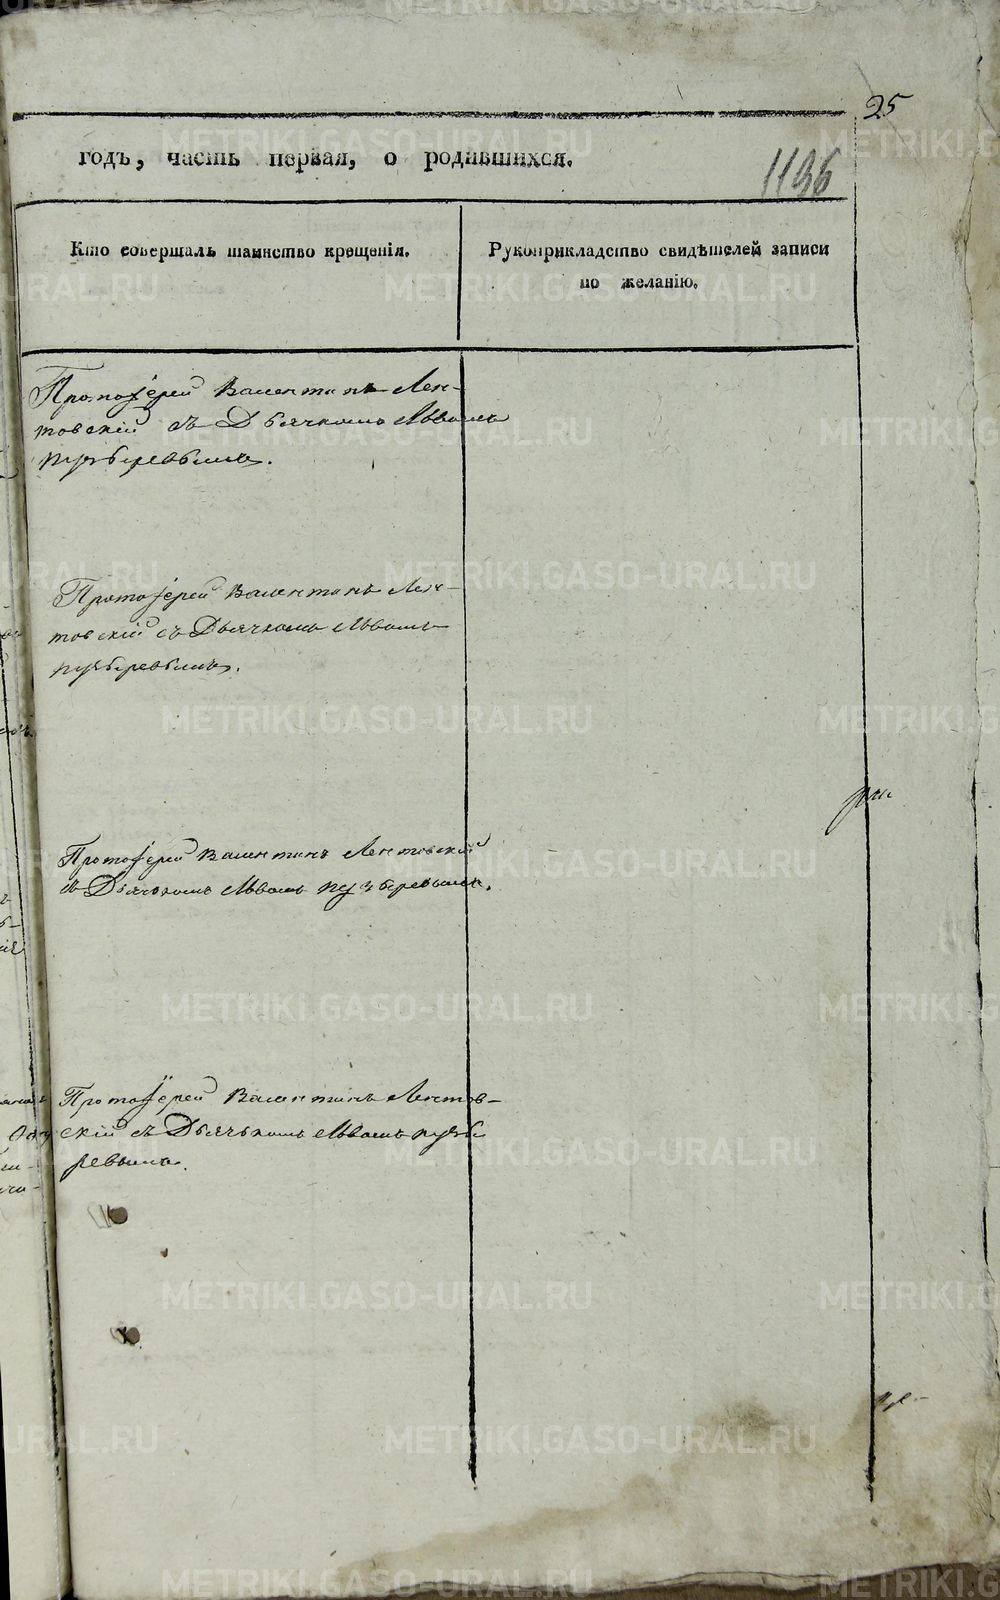 25
годъ, часть первая, о родившихся.
1196
Кто совершалъ таинство крещенія.
Рукоприкладство свидѣтелей записи
по желанію.
Протоіерей Валентинъ Лен-
товскій съ Дьячкомъ Львомъ
Пузыревымъ.
Протоіерей Валентинъ Лен-
товскій съ Дьячкомъ Львомъ
Пузыревымъ.
Протоіерей Валентинъ Лентовскій
съ Дьячькомъ Львомъ Пузыревымъ.
Протоіерей Валентинъ Лентов-
скій съ Дьячькомъ Львомъ Пузы
ревымъ.
METRIKI.GASO-URAL.RU